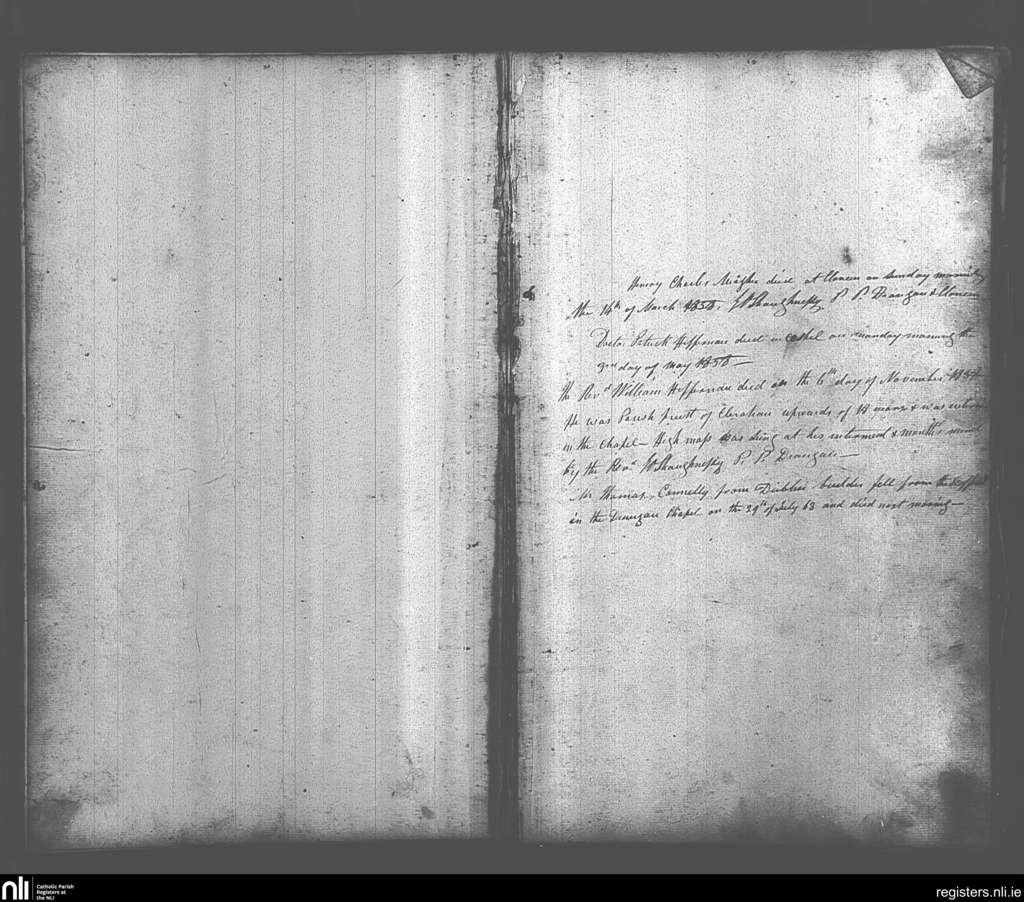 Henry Charles Meagher died at Cloneen on Sunday morning
the 14th of March 1858. Wm Shaughnessy P. P. Drangan & Cloneen
Doctor Patrick Heffernan died in Cashel on Monday morning the
3rd day of May 1858 —
The Revd William Heffernan died on the 6th day of November
He was Parish priest of Clerahan upwards of 18 & was
in the Chapel — High mass was sung at his interment & months mind
by the Revd Wm Shaughnessy P. P. Drangan —
Mr Thomas Connelly from Dublin builder fell from the
in the Drangan Chapel on the 29th of July 63 and died next morning —
nli
Catholic Parish
Registers at
the NLI
registers.nli.ie